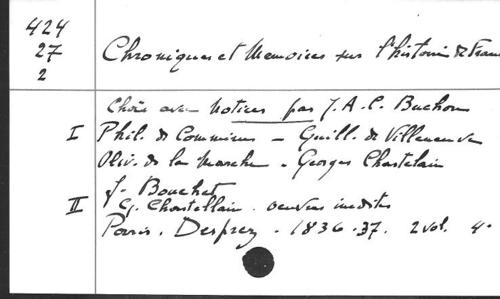 424
27
2
Chroniques et Memoires sur l'histoire de Fran
Choix avec Notices par J. A. C. Buchon
I Phil. de Commines - Guill. de Villeneuve
Oliv. de la Marche - Georges Chastelain
J. Bouchet
II G. Chastellain. oeuvres inedites
Paris. Desprez. 1836-37. 2 vol. 4º